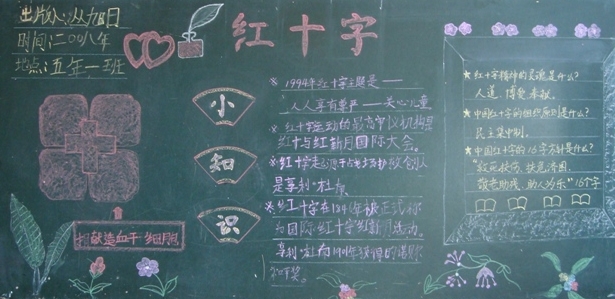 出版人:丛旭日
时间:二〇〇八年
地点:五年一班
红十字
小
知
识
※ 1994年红十字主题是——
人人享有尊严——关心儿童
※ 红十字运动的最高审议机构是
红十字与红新月国际大会。
※ 红十字起源于战场救护创始人
是亨利·杜南
红十字在
被正式称
为国际红十字红新月运动。
亨利·杜南1901年获得的诺贝尔
和平奖。
捐献造血干细胞
★ 红十字精神的灵魂是什么?
人道、博爱、奉献。
★ 中国红十字的组织原则是什么?
民主集中制。
★ 中国红十字的16字方针是什么?
"救死扶伤、扶危济困、
敬老助残、助人为乐"16字